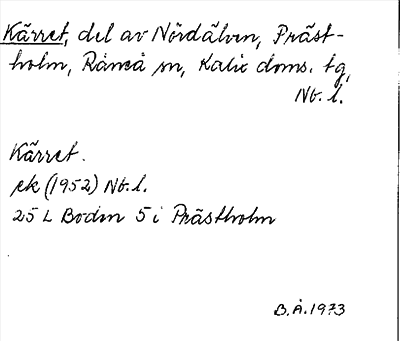 Kärret, del av Nördälven, Präst-
holm, Råneå sn, Kalix doms. tg,
Nb. l.
Kärret.
ek (1952) Nb. l.
25 L Boden 5 i Prästholm
B.Å. 1973